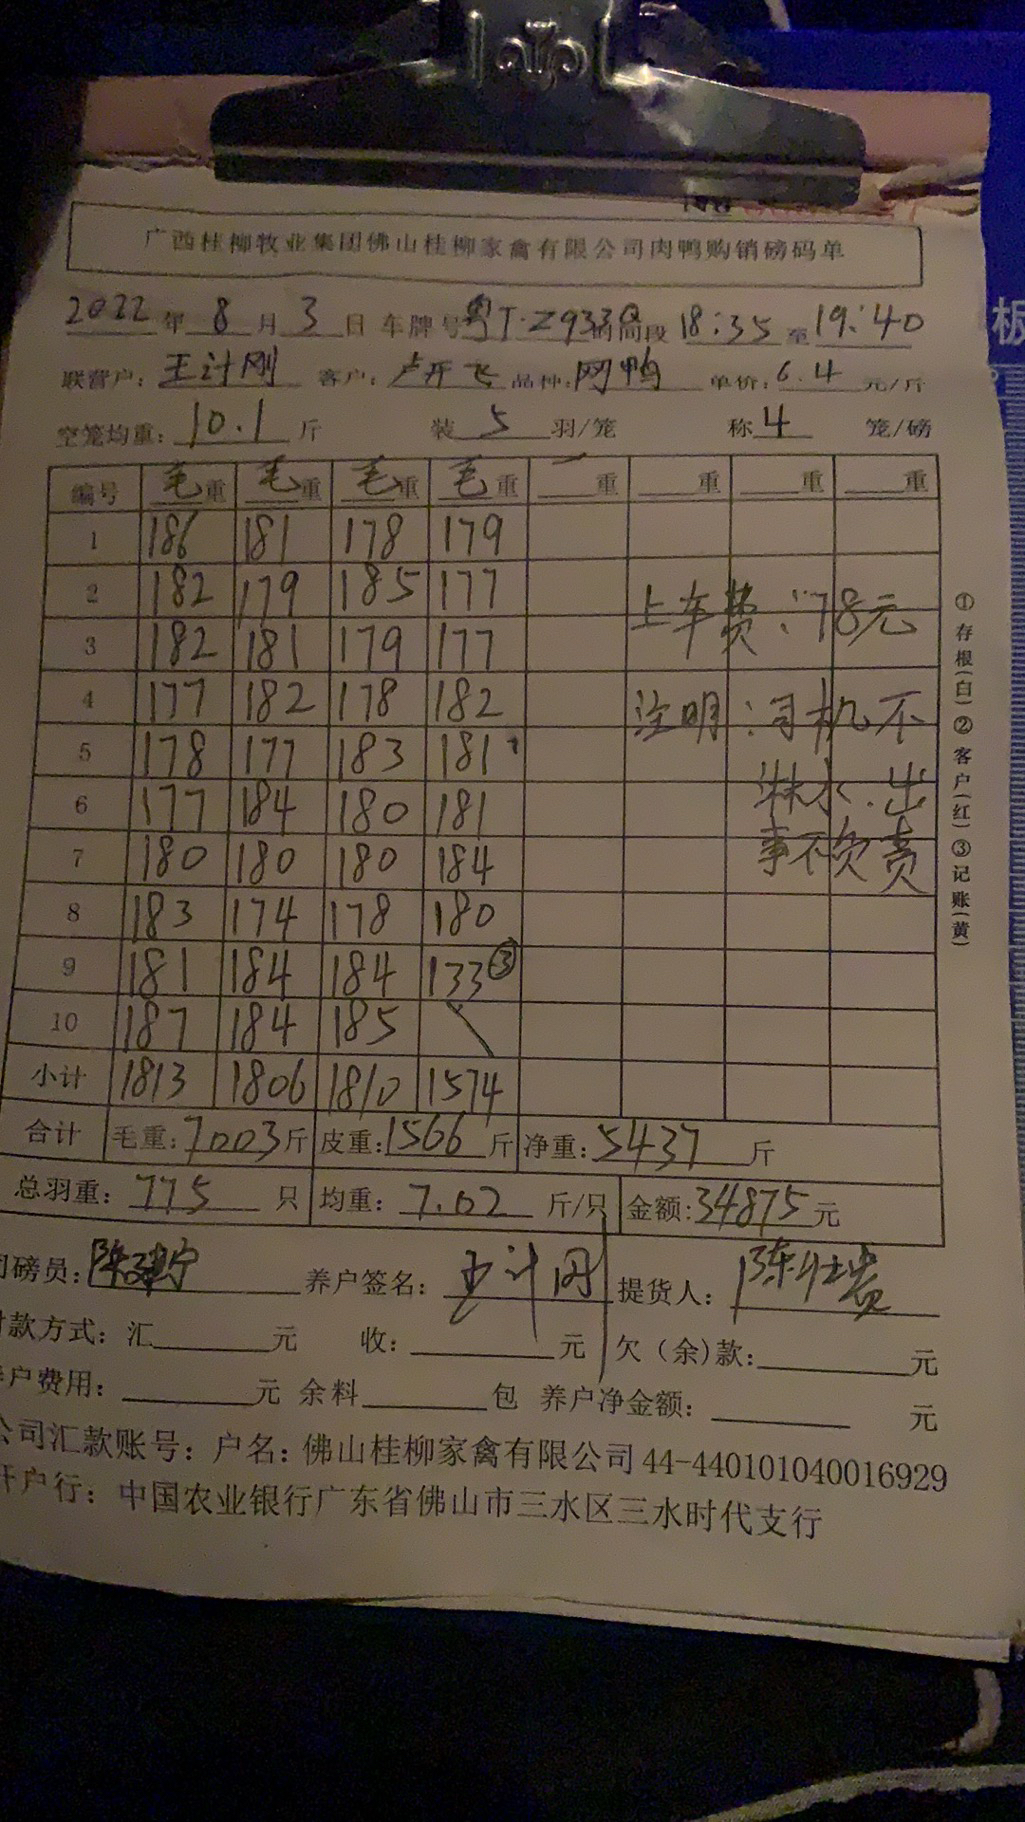 广西桂柳牧业集团佛山桂柳家禽有限公司肉鸭购销磅码单
2022年 8月 3日 车牌号粤T·Z933Q时间段 18:35至19:40
联营户:王计刚 客户:卢开飞 品种:网鸭 单价:6.4元/斤
空笼均重:10.1斤 装5羽/笼 称4笼/磅
编号 毛重 毛重 毛重 毛重 重 重 重 重
1 186 181 178 179
2 182 179 185 177
上车费:78元
3 182 181 179 177
4 177 182 178 182
注明:司机不
5 178 177 183 181
淋水.出
6 177 184 180 181
事不负责
7 180 180 180 184
8 183 174 178 180
9 181 184 184 133③
10 187 184 185
小计 1813 1806 1810 1574
合计 毛重:7003斤 皮重:1566斤 净重:5437斤
总羽重:775只 均重:7.02斤/只 金额:34875元
磅员: 养户签名:王计刚 提货人:
款方式:汇 元 收: 元 欠(余)款: 元
户费用: 元 余料 包 养户净金额: 元
公司汇款账号:户名:佛山桂柳家禽有限公司44-440101040016929
开户行:中国农业银行广东省佛山市三水区三水时代支行
①存根(白)②客户(红)③记账(黄)
板